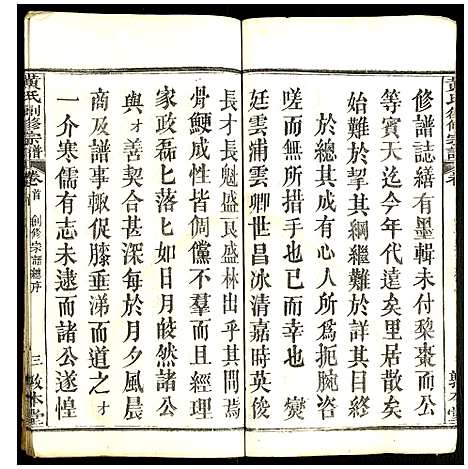 修譜誌繕有墨輯未付棃棗而公
等賓天迄今年代遠矣里居散矣
始難於其綱繼難於詳其目終難
於總其成用是人心人所為扼腕咨
嗟而無措手者也幸已而 爕
廷雲浦雲昌冰清嘉時英俊
長才長魁盛艮盛林出乎其間焉
骨鯁成性倜儻不羣而且經理
家政磊匕落匕日月皎然諸公
與才善契合甚深每於月夕風晨
商及譜事輙促膝垂涕而道之才
一介寒儒有志未逮而諸公遂惶
黃氏創修宗譜 卷首 創修宗譜總序 三 敦本堂